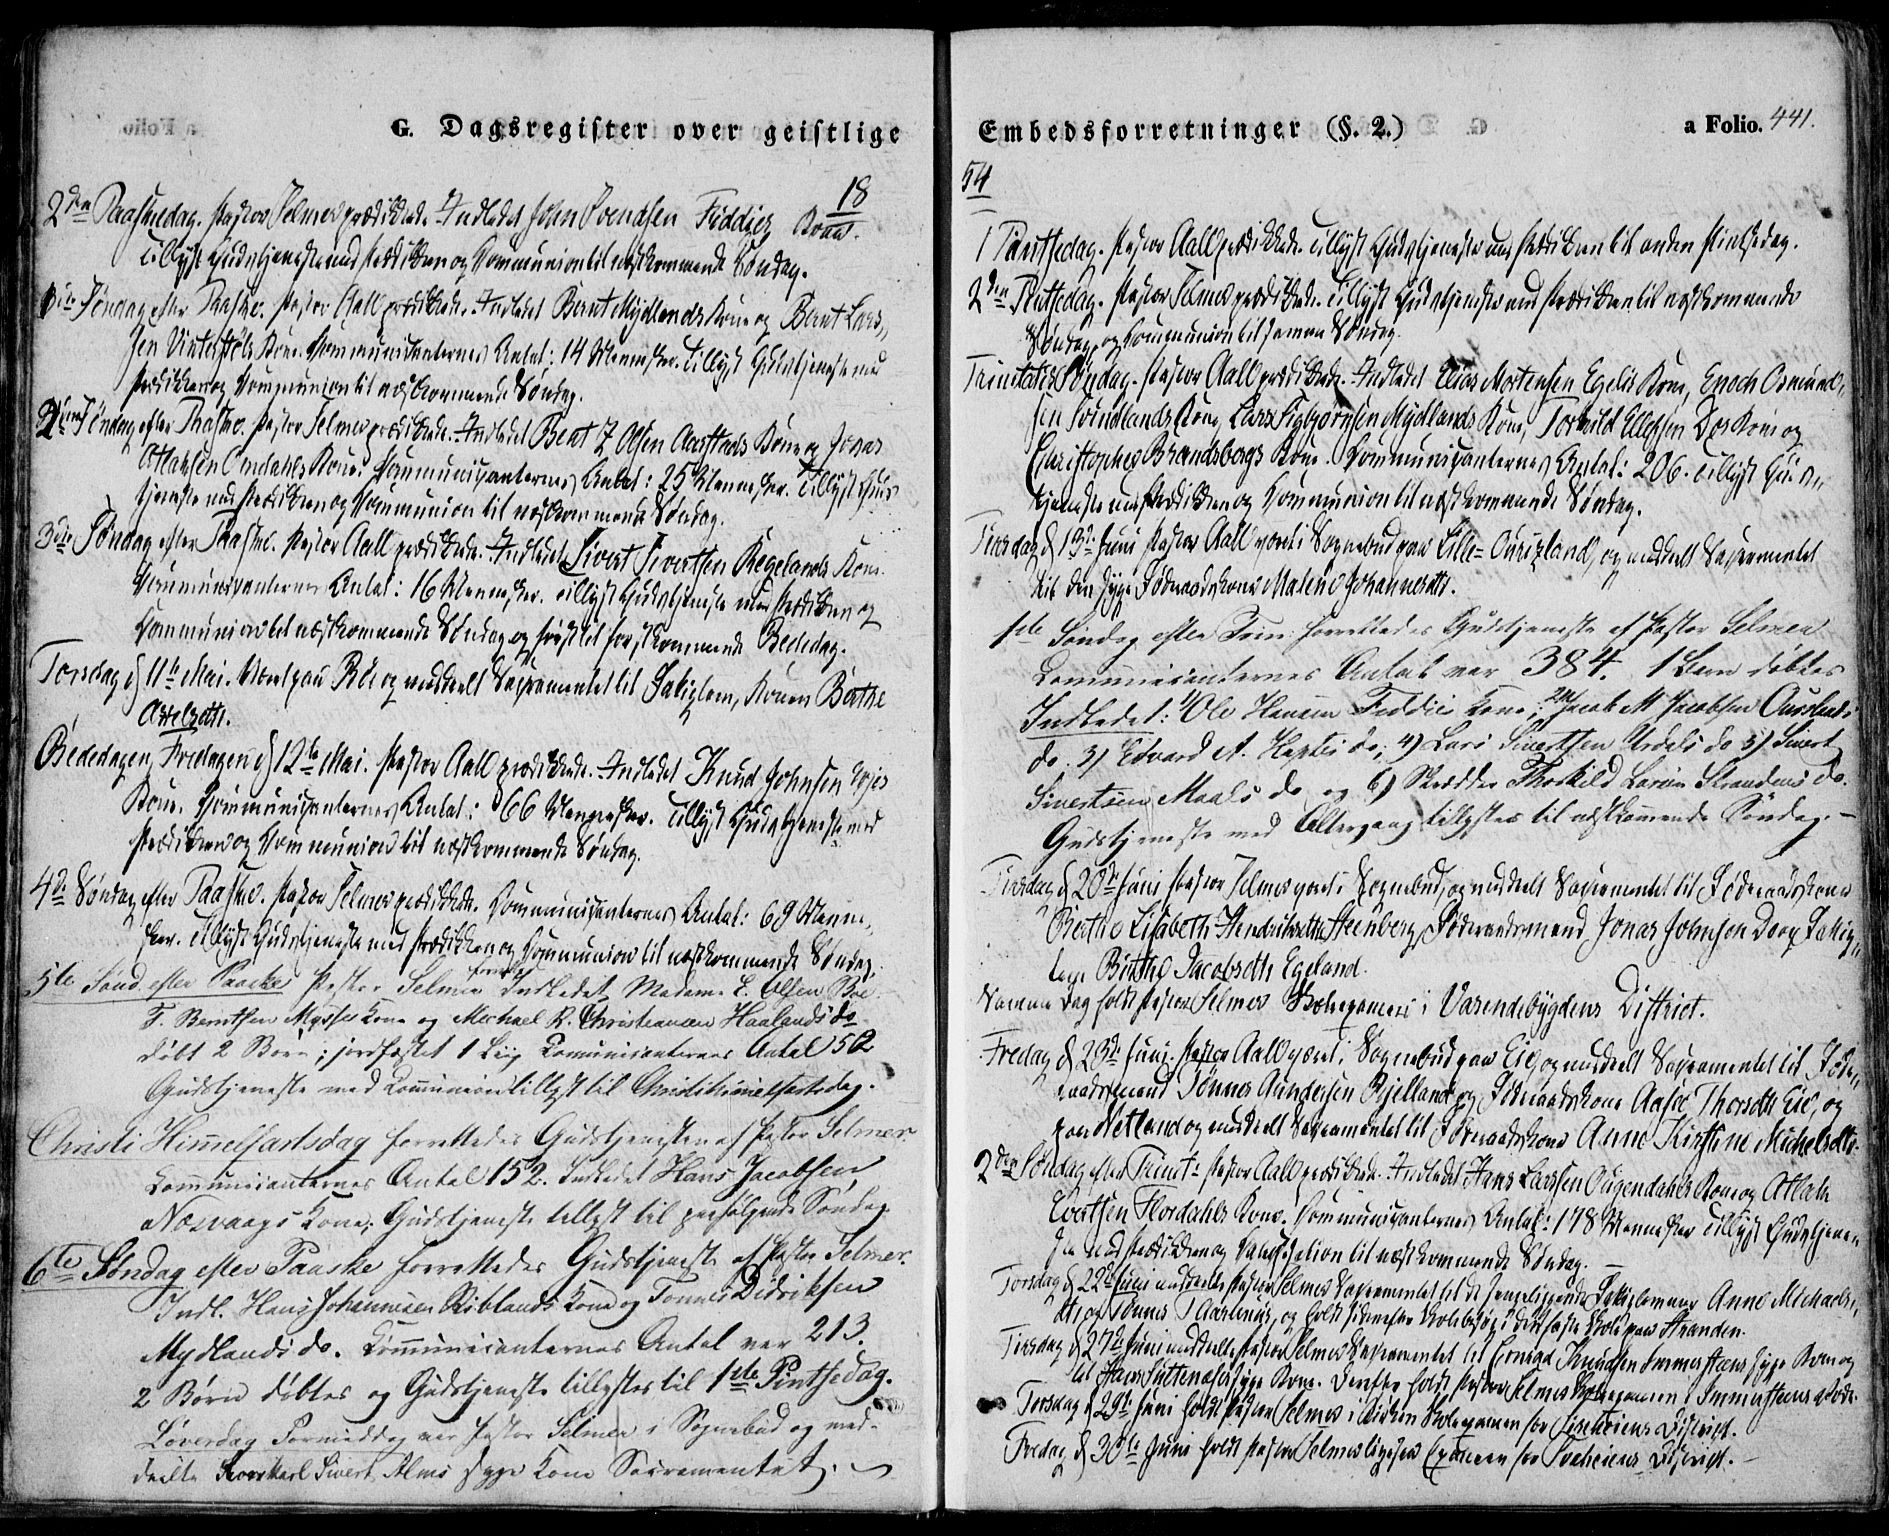 G. Dagsregister over geistlige
18
2den Paaskedag. Pastor Selmer prædikede. Indledet John Svendsen Feddies Kone.
Tillyst Gudstjeneste med Prædiken og Communion til næstkommende Søndag.
1ste Søndag efter Paaske. Pastor Aall prædikede. Indledet Bernt Mydlands Kone og Bernt Lars-
sen Kone. Communicanternes Antal: 14 Mennesker. Tillyst Gudstjeneste med
Prædiken og Communion til næstkommende Søndag.
2den Søndag efter Paaske. Pastor Selmer prædikede. Indledet Bent Olsen Aarstads Kone og Jonas
Atlaksen Omdahls Kone. Communicanternes Antal: 25 Mennesker. Tillyst Guds-
tjeneste med Prædiken og Communion til næstkommende Søndag.
3die Søndag efter Paaske. Pastor Aall prædikede. Indledet Sivert Sivertsen Regelands Kone.
Communicanternes Antal: 16 Mennesker. Tillyst Gudstjeneste med Prædiken og
Communion til næstkommende Søndag og først til førstkommende Bededag.
Torsdag d. 11te Mai. Været paa og meddeelt Sacramentet til Konen Berthe
Axelsdtr.
Bededagen, Fredagen d. 12te Mai. Pastor Aall prædikede. Indledet Knud Johnsen
Kone. Communicanternes Antal: 66 Mennesker. Tillyst Gudstjeneste med
Prædiken og Communion til næstkommende Søndag.
4de Søndag efter Paaske. Pastor Selmer prædikede. Communicanternes Antal: 69 Menne-
sker. Tillyst Gudstjeneste med Prædiken og Communion til næstkommende Søndag.
5te Sønd. efter Paaske Pastor Selmer Indledet Madame E. Olsen Boe
T. Berntsen Mysses Kone og Michael R. Christiansen Haalands do
døbt 2 Børn; jordfæstet 1 Liig Communicanternes Antal 52
Gudstjeneste med Communion tillyst til Christi Himmelfartsdag.
Christi Himmelfartsdag forrettedes Gudstjenesten af Pastor Selmer.
Communicanternes Antal 152. Indledet Hans Jacobsen
Næsvaags Kone; Gudstjeneste tillyst til paafølgende Søndag
6te Søndag efter Paaske forrettedes Gudstjeneste af Pastor Selmer.
Indl. Hans Johannesen Riblands Kone og Tønnes Didriksen
Mydlands do. Communicanternes Antal var 213.
2 Børn døbtes og Gudstjeneste tillystes til 1ste Pintsedag.
Løverdag Formiddag var Pastor Selmer i Sognebud og med-
deelte Sivert Alms syge Kone Sacramentet.
Embedsforretninger (§. 2.)
a Folio. 441.
54
1 Pintsedag. Pastor Aall prædikede. Tillyst Gudstjeneste med Prædiken til anden Pintsedag.
2den Pintsedag. Pastor Selmer prædikede. Tillyst Gudstjeneste med Prædiken til næstkommende
Søndag, og Communion til samme Søndag.
Trinitatis Søndag. Pastor Aall prædikede. Indledet Elias Mortensen Egelis Kone, Enoch Osmund-
sen Svindlands Kone, Lars Sigbjørnsen Mydlands Kone, Torkild Ellefsen Dos Kone og
Christopher Brandsbergs Kone. Communicanternes Antal: 206. Tillyst Guds-
tjeneste med Prædiken og Communion til næstkommende Søndag.
Tirsdag d. 13de Juni Pastor Aall været i Sognebud paa Lille-Ousland, og meddeelt Sacramentet
til den syge Føderaadskone Malene Johannesdtr.
1ste Søndag efter Trin: forrettedes Gudstjeneste af Pastor Selmer
Communicanternes Antal var 384. 1 Barn døbtes
Indledet: 1) Ole Hansen Feddies Kone; 2) Jacob M Jacobsen Ouslands
do. 3) Edvard A. do; 4) Lars Sivertsen Urdals do 5) Sivert
Sivertsen Maals do og 6) Skredder Thorkild Larsen Strandens do.
Gudstjeneste med Altergang tillystes til næstkommende Søndag.
Tirsdag d. 20de Juni Pastor Selmer været i Sognebud, og meddeelt Sacramentet til Føderaadskone
Berthe Lisabeth Hendriksdtr Steenberg, Føderaadsmand Jonas Johnsen Do og
Berthe Jacobsdtr Egeland.
Samme Dag holdt Pastor Selmer Skoleexamen i Varendebygdens District.
Fredag d. 23de Juni. Pastor Aall været i Sognebud paa Eie, og meddeelt Sacramentet til Føde-
raadsmand Tønnes Gundersen Bjelland og Føderaadskone Aase Thorsdtr Eie, og
paa Netland og meddeelt Sacramentet til Føderaadskone Anne Kirstine Michelsdtr.
2den Søndag efter Trinit: Pastor Aall prædikede. Indledet Hans Larssen Ougendahls Kone og Atlak
Evertsen Flordahls Kone. Communicanternes Antal: 178 Mennesker Tillyst Gudstjene-
ste med Prædiken og til næstkommende Søndag.
Torsdag d. 22de Juni meddeelte Pastor Selmer Sacramentet til de sengeliggende Anne Michaels-
dtr og Tønnes og holdt sidenefter Skolebesøg i den faste Skole paa Stranden.
Tirsdag d. 27de Juni meddeelte Pastor Selmer Sacramentet til Knudsen syge Kone og
til Hans syge Kone. Derefter holdt Pastor Selmer Skoleexamen i
Torsdag d. 29de Juni holdt Pastor Selmer i Kirken Skoleexamen for District.
Fredag d. 30te Juni holdt Pastor Selmer ligesaa Examen for District.